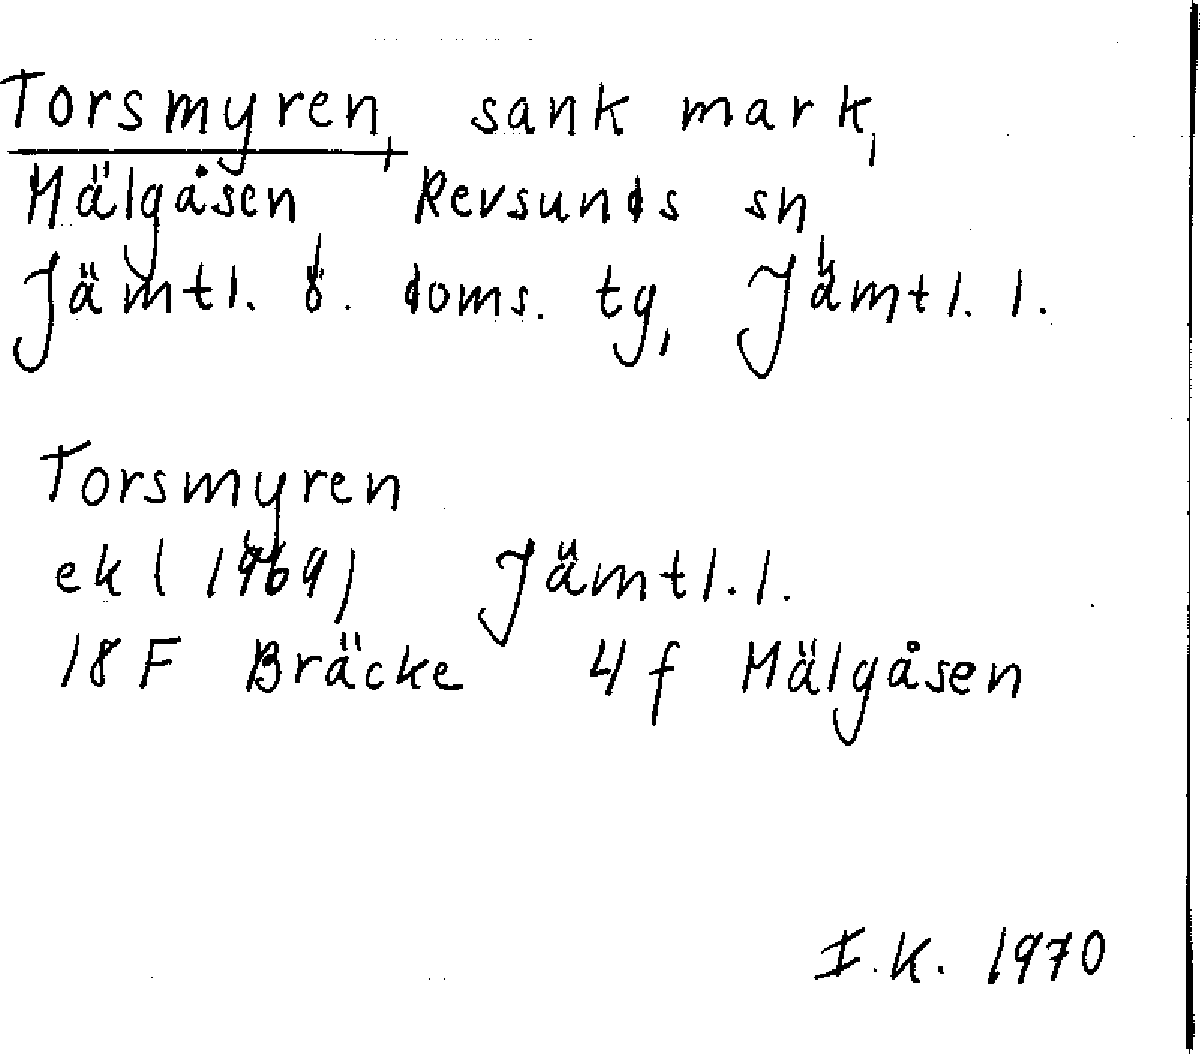 Torsmyren, sank mark,
Mälgåsen, Revsunds sn,
Jämtl. ö. doms. tg, Jämtl. l.
Torsmyren
ek (1969) Jämtl. l.
18 F Bräcke 4 f Mälgåsen
I.K. 1970